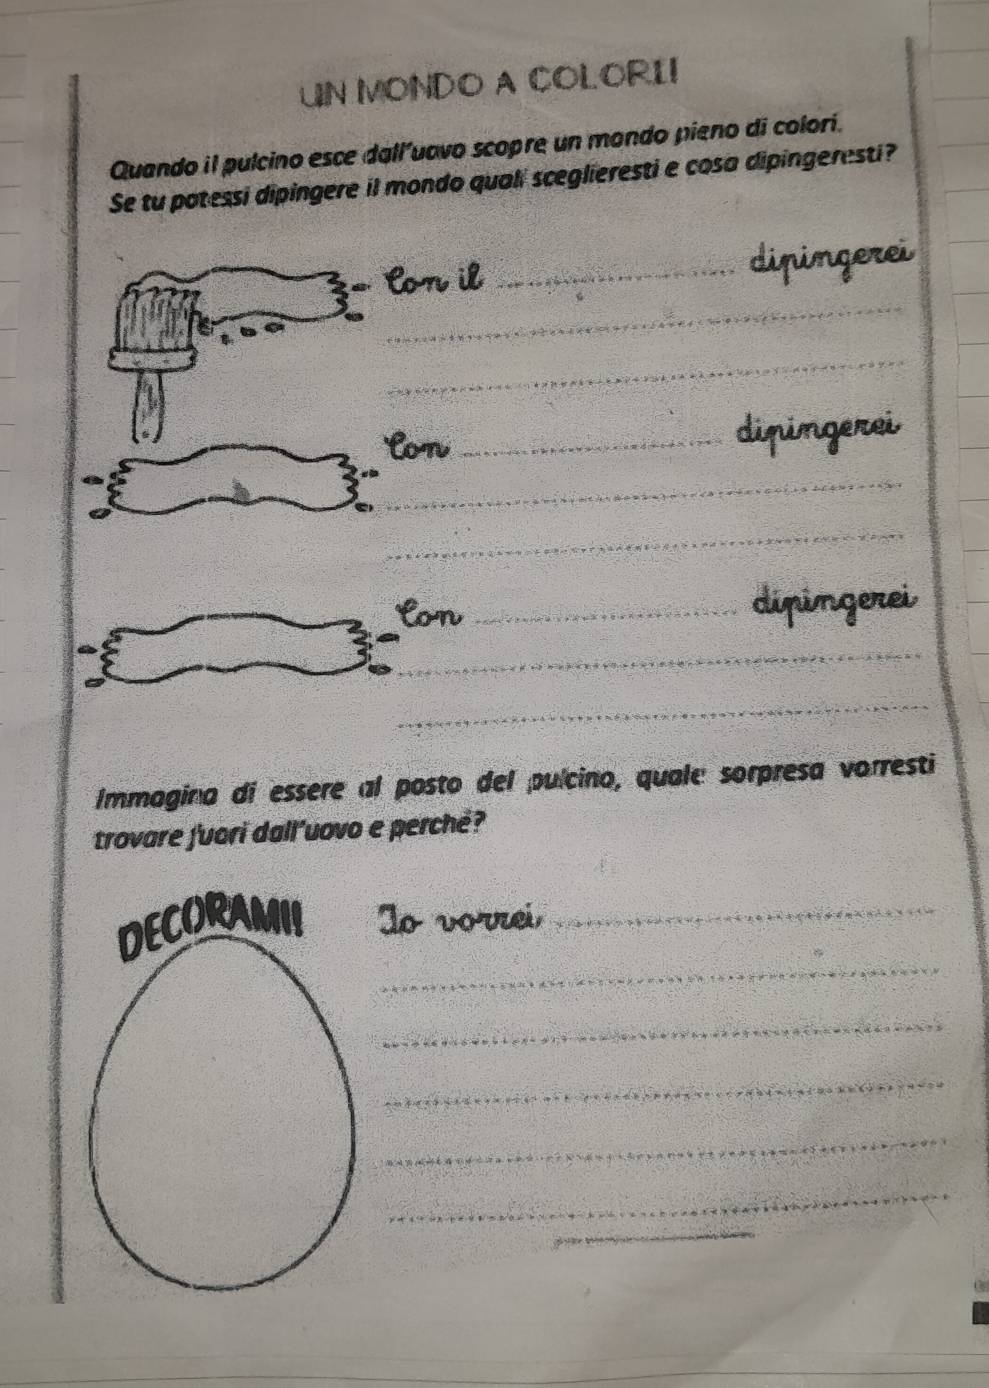 UN MONDO A COLORI!
Quando il pulcino esce dall'uovo scopre un mondo pieno di colori.
Se tu potessi dipingere il mondo quali sceglieresti e cosa dipingeresti?
Con il ........................ dipingerei
Con ........................ dipingerei
Con ........................ dipingerei
Immagina di essere al posto del pulcino, quale sorpresa vorresti
trovare fuori dall'uovo e perché?
DECORAMI!
Io vorrei ........................